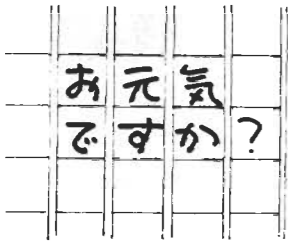 お元気
ですか?